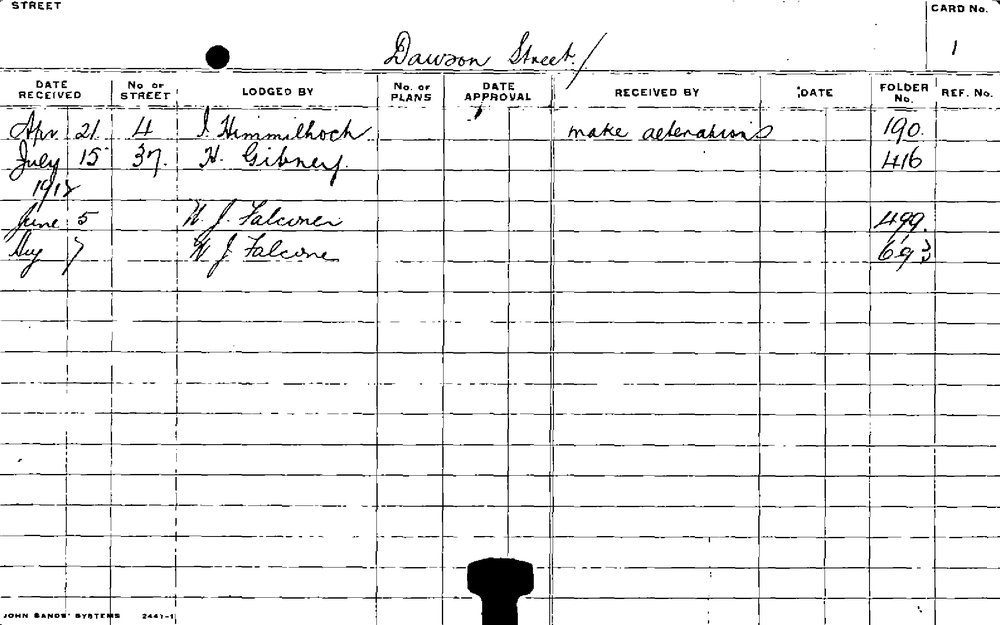 STREET
CARD No.
Dawson Street. /
1
DATE RECEIVED No OF STREET LODGED BY No. OF PLANS DATE APPROVAL RECEIVED BY DATE FOLDER No. REF. No.
Apr 21 4 I Himmilhoch make alterations 190.
July 15 37. H. Gibney. 416
1918
June 5 W. J. Falconer 499.
Aug 7 W J Falcone 693
JOHN SANDS' SYSTEMS 2447-1